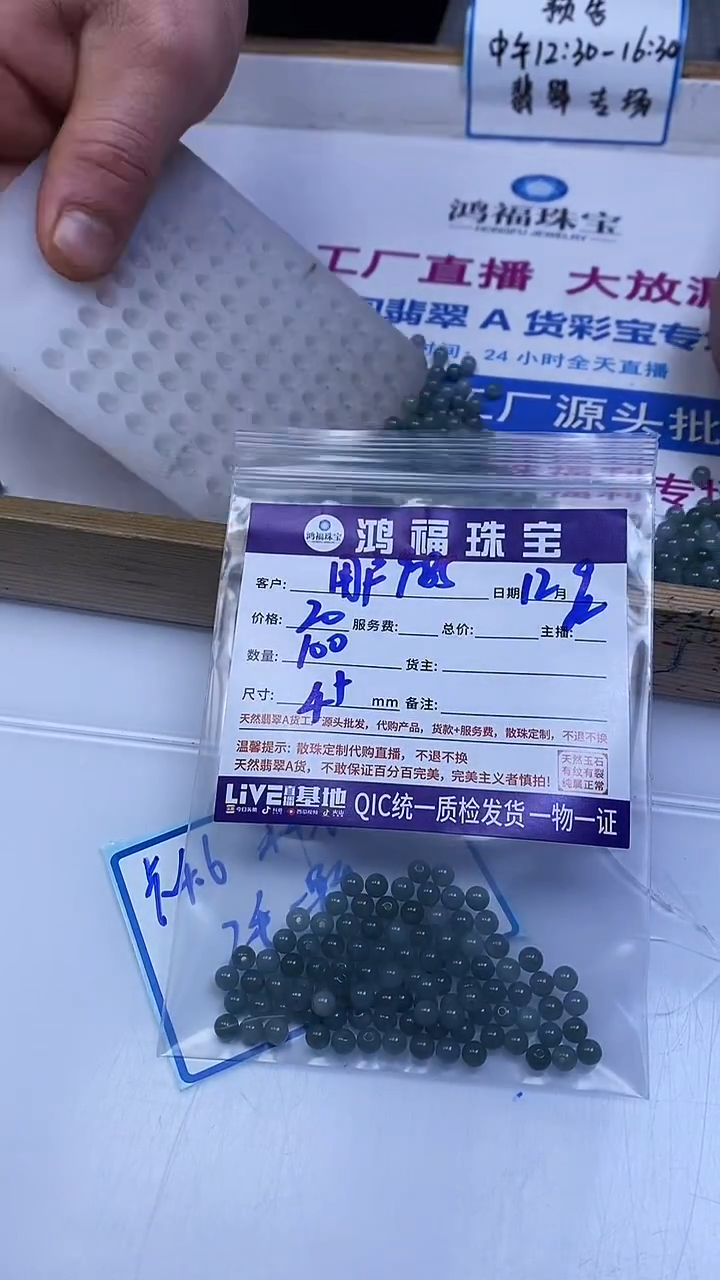 预告
中午12:30-16:30
翡翠专场
鸿福珠宝
HONGFU JEWELRY
工厂直播 大放
翡翠 A 货彩宝专
时间：24 小时全天直播
工厂源头批
专
鸿福珠宝
鸿福珠宝
客户: 用户785 日期12月9
价格: 20 服务费: 总价: 主播:
数量: 100 货主:
尺寸: 4+ mm 备注:
天然翡翠A货工厂源头批发，代购产品，货款+服务费，散珠定制，不退不换
温馨提示: 散珠定制代购直播，不退不换
天然翡翠A货，不敢保证百分百完美，完美主义者慎拍!
天然玉石
有纹有裂
纯属正常
LiVE直播基地 QIC统一质检发货 一物一证
今日头条 抖音 西瓜视频